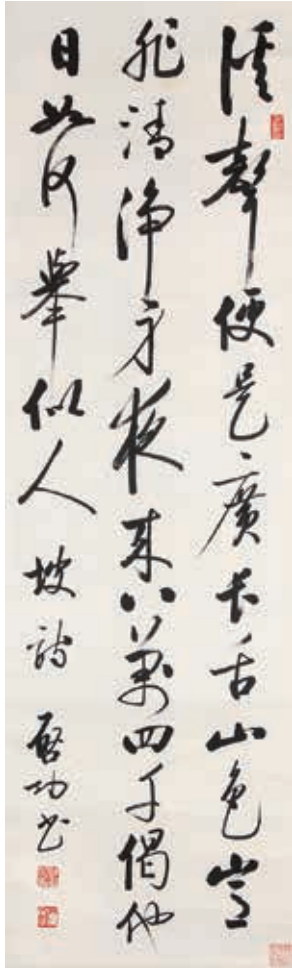 溪聲便是廣長舌山色豈
非清淨身夜來八萬四千偈他
日如何舉似人 坡詩 啓功書